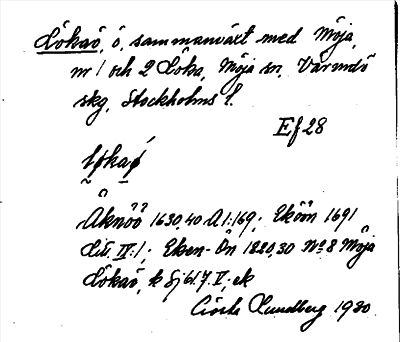 Lökaö, ö, sammanväxt med Möja,
nr 1 och 2 Löka, Möja sn, Värmdö
skg, Stockholms l.
Ef 28
løkaǿ
Åknöö 1630,40 A1:169; Eköön 1691
Lit. IV:1; Eken-Ön 1820,30 No 8 Möja
Lökaö, k Sj bl. 7. V; ek
Gösta Lundberg 1930.